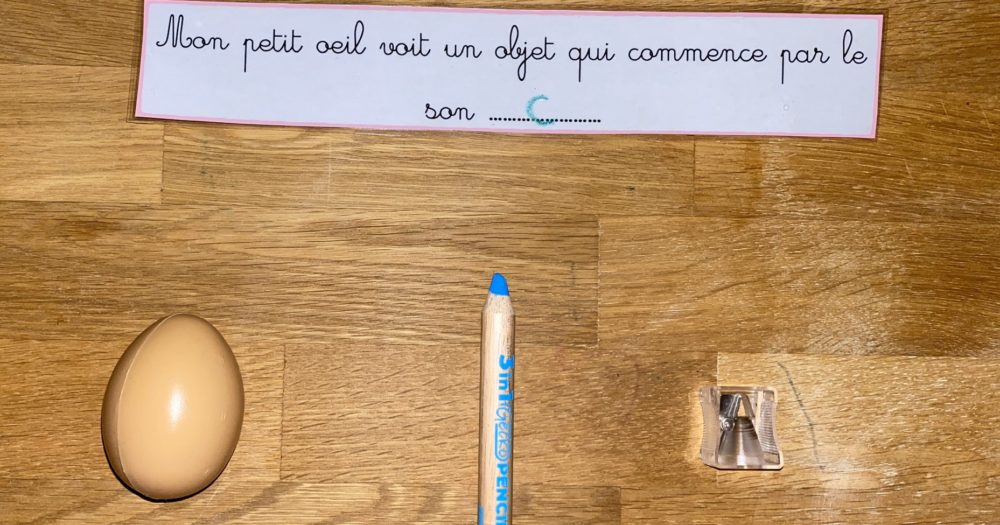 Mon petit oeil voit un objet qui commence par le
son ......c......
3 in 1
PENCIL